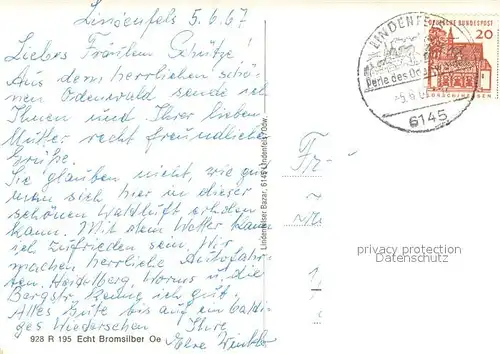 Lindenfels 5.6.67
Liebes Fräulein Schütze!
Aus dem herrlichen schö-
nen Odenwald sende ich
Ihnen und Ihrer lieben
Mutter recht freundliche
Grüße.
Sie glauben nicht, wie gut
man sich hier in dieser
schönen Waldluft erholen
kann. Mit dem Wetter kann
ich zufrieden sein. Wir
machen herrliche Autofahr-
ten. Heidelberg, Worms u. die
Bergstr. kenne ich gut.
Alles Gute bis auf ein baldi-
ges Wiedersehen Ihre
928 R 195 Echt Bromsilber
Lindenfelser Bazar, 6145 Lindenfels/Odw.
LINDENFELS
Perle des Od
5.6.
6145
DEUTSCHE BUNDESPOST
20
LORSCH/HESSEN
privacy protection
Datenschutz